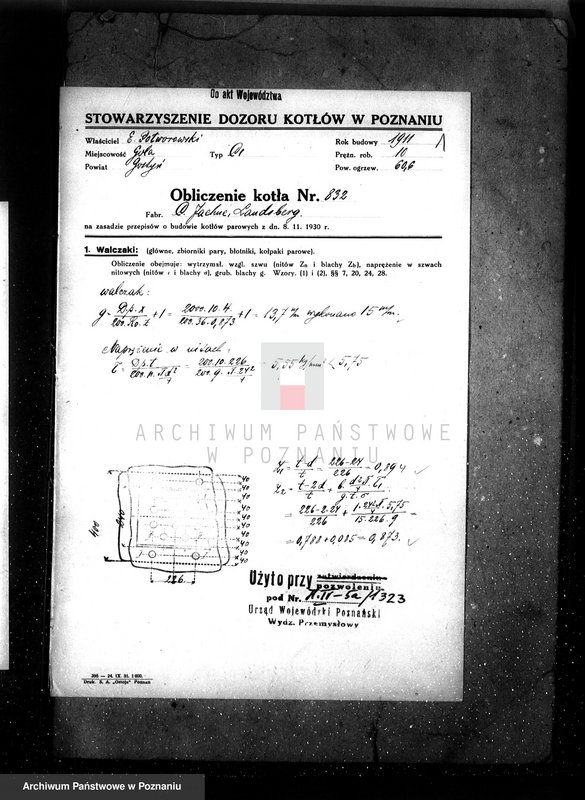 Do akt Województwa
STOWARZYSZENIE DOZORU KOTŁÓW W POZNANIU
Właściciel E. Potworowski Rok budowy 1911
Miejscowość Gola Typ Prężn. rob. 10
Powiat Gostyń Pow. ogrzew. 60,6
Obliczenie kotła Nr. 832
Fabr. C. Jaehne, Landsberg.
na zasadzie przepisów o budowie kotłów parowych z dn. 8. 11. 1930 r.
1. Walczaki: (główne, zbiorniki pary, błotniki, kołpaki parowe).
Obliczenie obejmuje: wytrzymał. wzgl. szwu (nitów Zn i blachy Zb), naprężenie w szwach
nitowych (nitów τ i blachy σ), grub. blachy g. Wzory. (1) i (2), §§ 7, 20, 24, 28.
walczak:
g = D.p.x / 200.Kz.z + 1 = 2000.10.4 / 200.36.0,873 + 1 = 13,7 m/m wykonano 15 m/m.
Naprężenie w nitach:
= 2000.10.226 = 5,55 kg/mm² < 5,75
ARCHIWUM PAŃSTWOWE
W POZNANIU
z1 = t-d / t = 226-24 / 226 = 0,894
z2 = t-2d / t +
= 226-2.24 / 226 + 5,75 / 15.226.9 =
= 0,788 + 0,085 = 0,873.
40
40
40
40
40
40
40
40
40
226
Użyto przy zatwierdzenin
pozwoleniu
pod Nr. /1323
Urząd Wojewódzki Poznański
Wydz. Przemysłowy
396 — 24. IX. 31. 1 600.
Druk. S. A. „Ostoja" Poznań
Archiwum Państwowe w Poznaniu